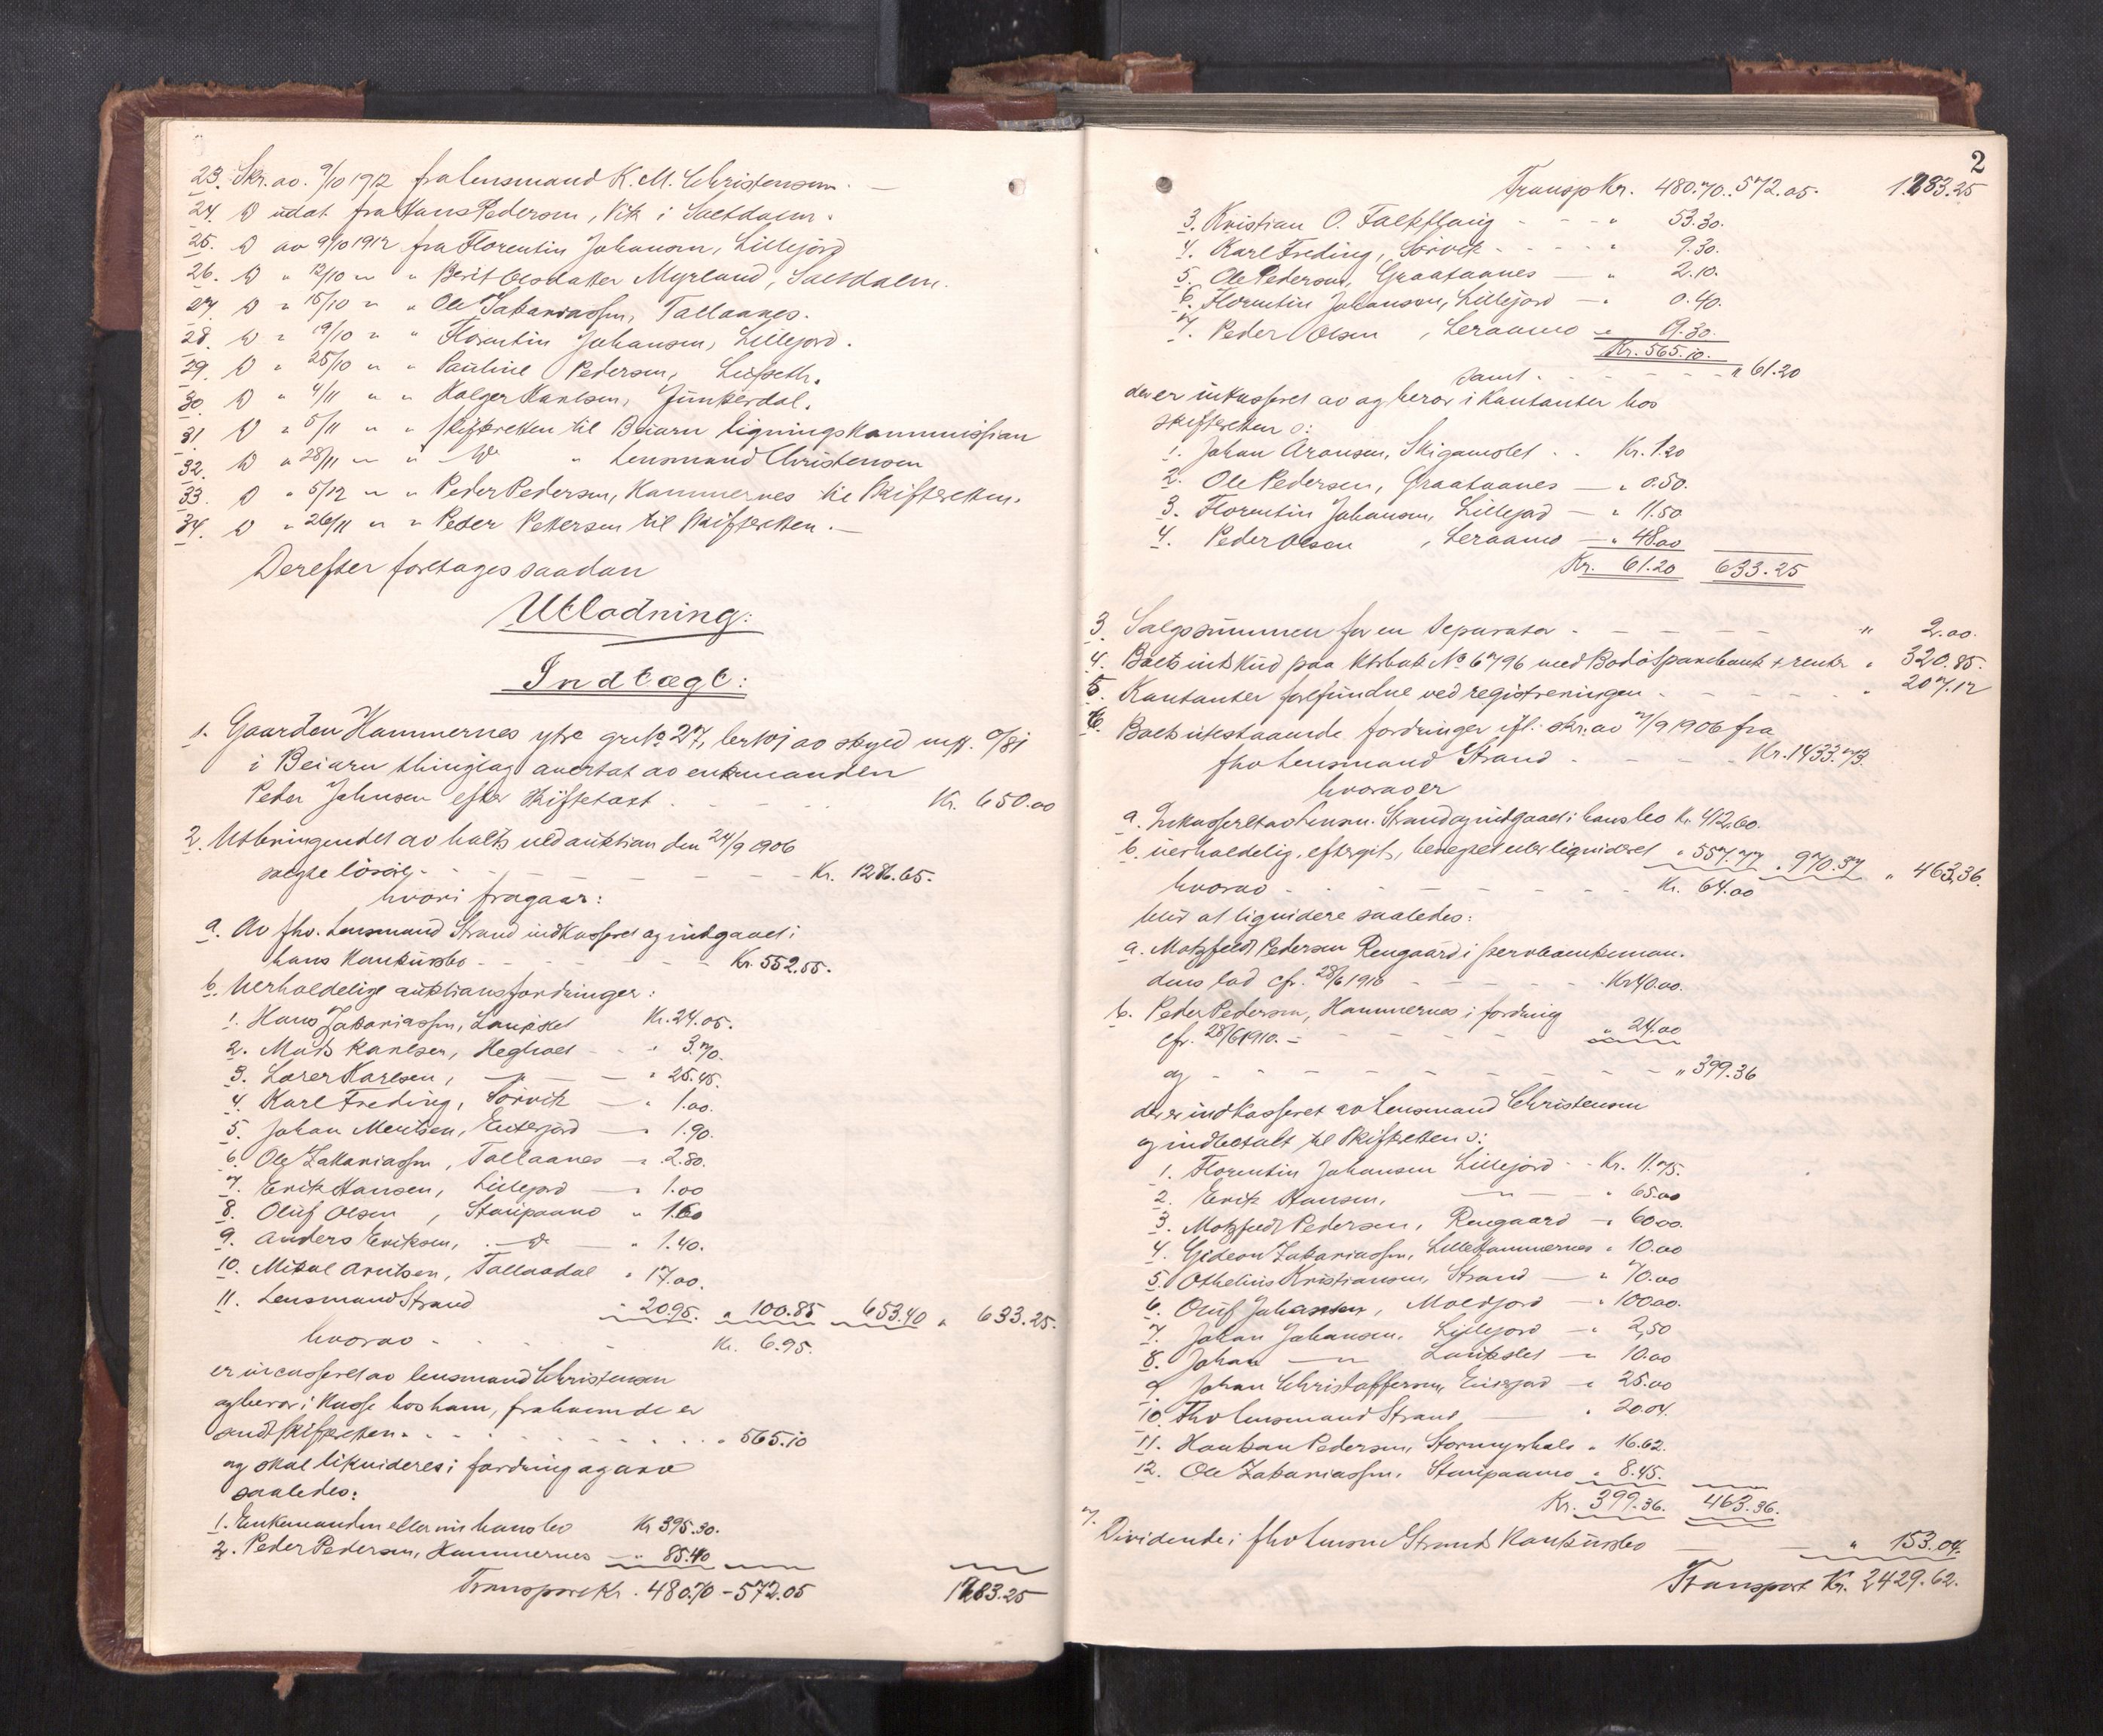 23. Skr. av. 9/10 1912 fra lensmand K. M. Christensen. —
24. D udat fra Hans Pedersen, Vik i Saltdalen.
25. D av 9/10 1912 fra Florentin Johansen, Lillejord
26. D " 12/10 " " Berit Olsdatter Myrland, Saltdalen.
27. D " 15/10 " " Ole Zakariassen, Tollaanes.
28. D " 19/10 " " Florentin Johansen, Lillejord.
29. D " 25/10 " " Pauline Pedersen,
30. D " 4/11 " " Holger Karlsen, Junkerdal.
31. D " 5/11 " " skifteretten til Beiarn ligningskommission
32. D " 28/11 " " Do " Lensmand Christensen
33. D " 5/12 " " Peder Pedersen, Hammernes til skifteretten.
34. D " 26/11 " " Peder Petersen til skifteretten. —
Derefter foretages saadan
Utlodning:
Indtægt:
1. Gaarden Hammernes ytre grno 27, brno 1 av skyld mk. 0/81
i Beiarn thinglag overtat av enkemanden
Peder Johnsen efter skiftetakst . - - - Kr. 650.00
2. Utbringendet av holdt ved auktion den 24/9 1906
solgte løsøre - - - - - - Kr. 1286.65.
hvori fragaar:
a. Av fhv. Lensmand Strand indkasseret og indgaaet i
hans konkursbo - - - - - Kr. 552.55.
b. Uerholdelige auktionsfordringer:
1. Hans Zakariassen, Kr. 24.05.
2. Mads Karlsen, - - " 3.70.
3. Karlsen, — " — " 25.45.
4. Karl Freding, Sørvik — " 1.00.
5. Johan Mentsen, — " 1.90.
6. Ole Zakariassen, Tollaanes — " 2.80.
7. Erik Hansen, Lillejord — " 1.00
8. Oluf Olsen, Staupaamo " 1.60
9. Anders Eriksen, . — Do — " 1.40.
10. Mikal Arntsen, Tollaadal " 17.00.
11. Lensmand Strand " 20.95. " 100.85 653.40 " 633.25.
hvorav - . . - Kr. 6.95.
er incasseret av lensmand Christensen
og beror i kasse hos ham, fra hvem de er
sendt skifteretten. - - - - - - " 565.10
og skal likvideres i fordring og arv
saaledes:
1. Enkemanden eller nu hans bo Kr 395.30.
2. Peder Pedersen, Hammernes — " 85.40
Transport Kr. 480.70 - 572.05 1283.25
2
Transp Kr. 480.70. 572.05. 1.283.25
3. Kristian O. Falkflaug - - - " 53.30.
4. Karl Freding, Sørvik - - - - " 9.30.
5. Ole Pedersen, Graataanes — " 2.10.
6. Florentin Johansen, Lillejord — " 0.40.
7. Peder Olsen, Leraamo — " 19.30.
Kr. 565.10.
samt - - - - - - " 61.20
der er inkasseret av og beror i kontanter hos
skifteretten o:
1. Johan Aronsen, . . Kr. 1.20
2. Ole Pedersen, Graataanes — " 0.50.
3. Florentin Johansen, Lillejord — " 11.50
4. Peder Olsen, Leraamo — " 48.00
Kr. 61.20 633.25
3. Salgssummen for en Separator - - - - - - " 2.00.
4. Boets indskud paa ktrbok No 6796 med Bodø Sparebank + renter " 320.85.
5. Kontanter forefundne ved registreringen - - - - - " 207.12
6. Boets utestaaende fordringer ifl. skr. av 7/9 1906 fra
fhv Lensmand Strand - - - - Kr. 1433.73.
hvorav er
a. Inkasseret av Lensm. Strand og indgaaet i hans bo Kr. 412.60.
b. uerholdelig, eftergit, benegtet eller liquideret " 557.77 " 970.37 " 463.36.
hvorav - - - - - - - Kr. 64.00
blir at liquidere saaledes:
a. Motzfeldt Pedersen Rengaard i
dens lod cfr. 28/6 1910 - - - - - Kr 40.00.
b. Peder Pedersen, Hammernes i fordring
cfr. 28/6 1910. - - - - - - " 24.00
og - - - - - - - - - " 399.36
der er indkasseret av Lensmand Christensen
og indbetalt til skifteretten o:
1. Florentin Johansen Lillejord - - Kr. 11.75.
2. Erik Hansen, — " — " 65.00
3. Motzfeldt Pedersen, Rengaard — " 60.00.
4. Gideon Zakariassen, Lillehammernes " 10.00
5. Othelius Kristiansen, Strand — " 70.00
6. Oluf Johansen, Moldjord — " 100.00.
7. Johan Johansen, Lillejord — " 2,50
8. Johan — " — — " 10.00
9. Johan Christoffersen, — " 25.00
10. Fhv lensmand Strand — " 20.04.
11. Haakon Pedersen, " 16.62.
12. Ole Zakariassen, Staupaamo " 8.45.
Kr. 399.36. 463.36.
7. Dividende i fhv lensm Strands konkursbo — " 153.04.
Transport Kr. 2429.62.